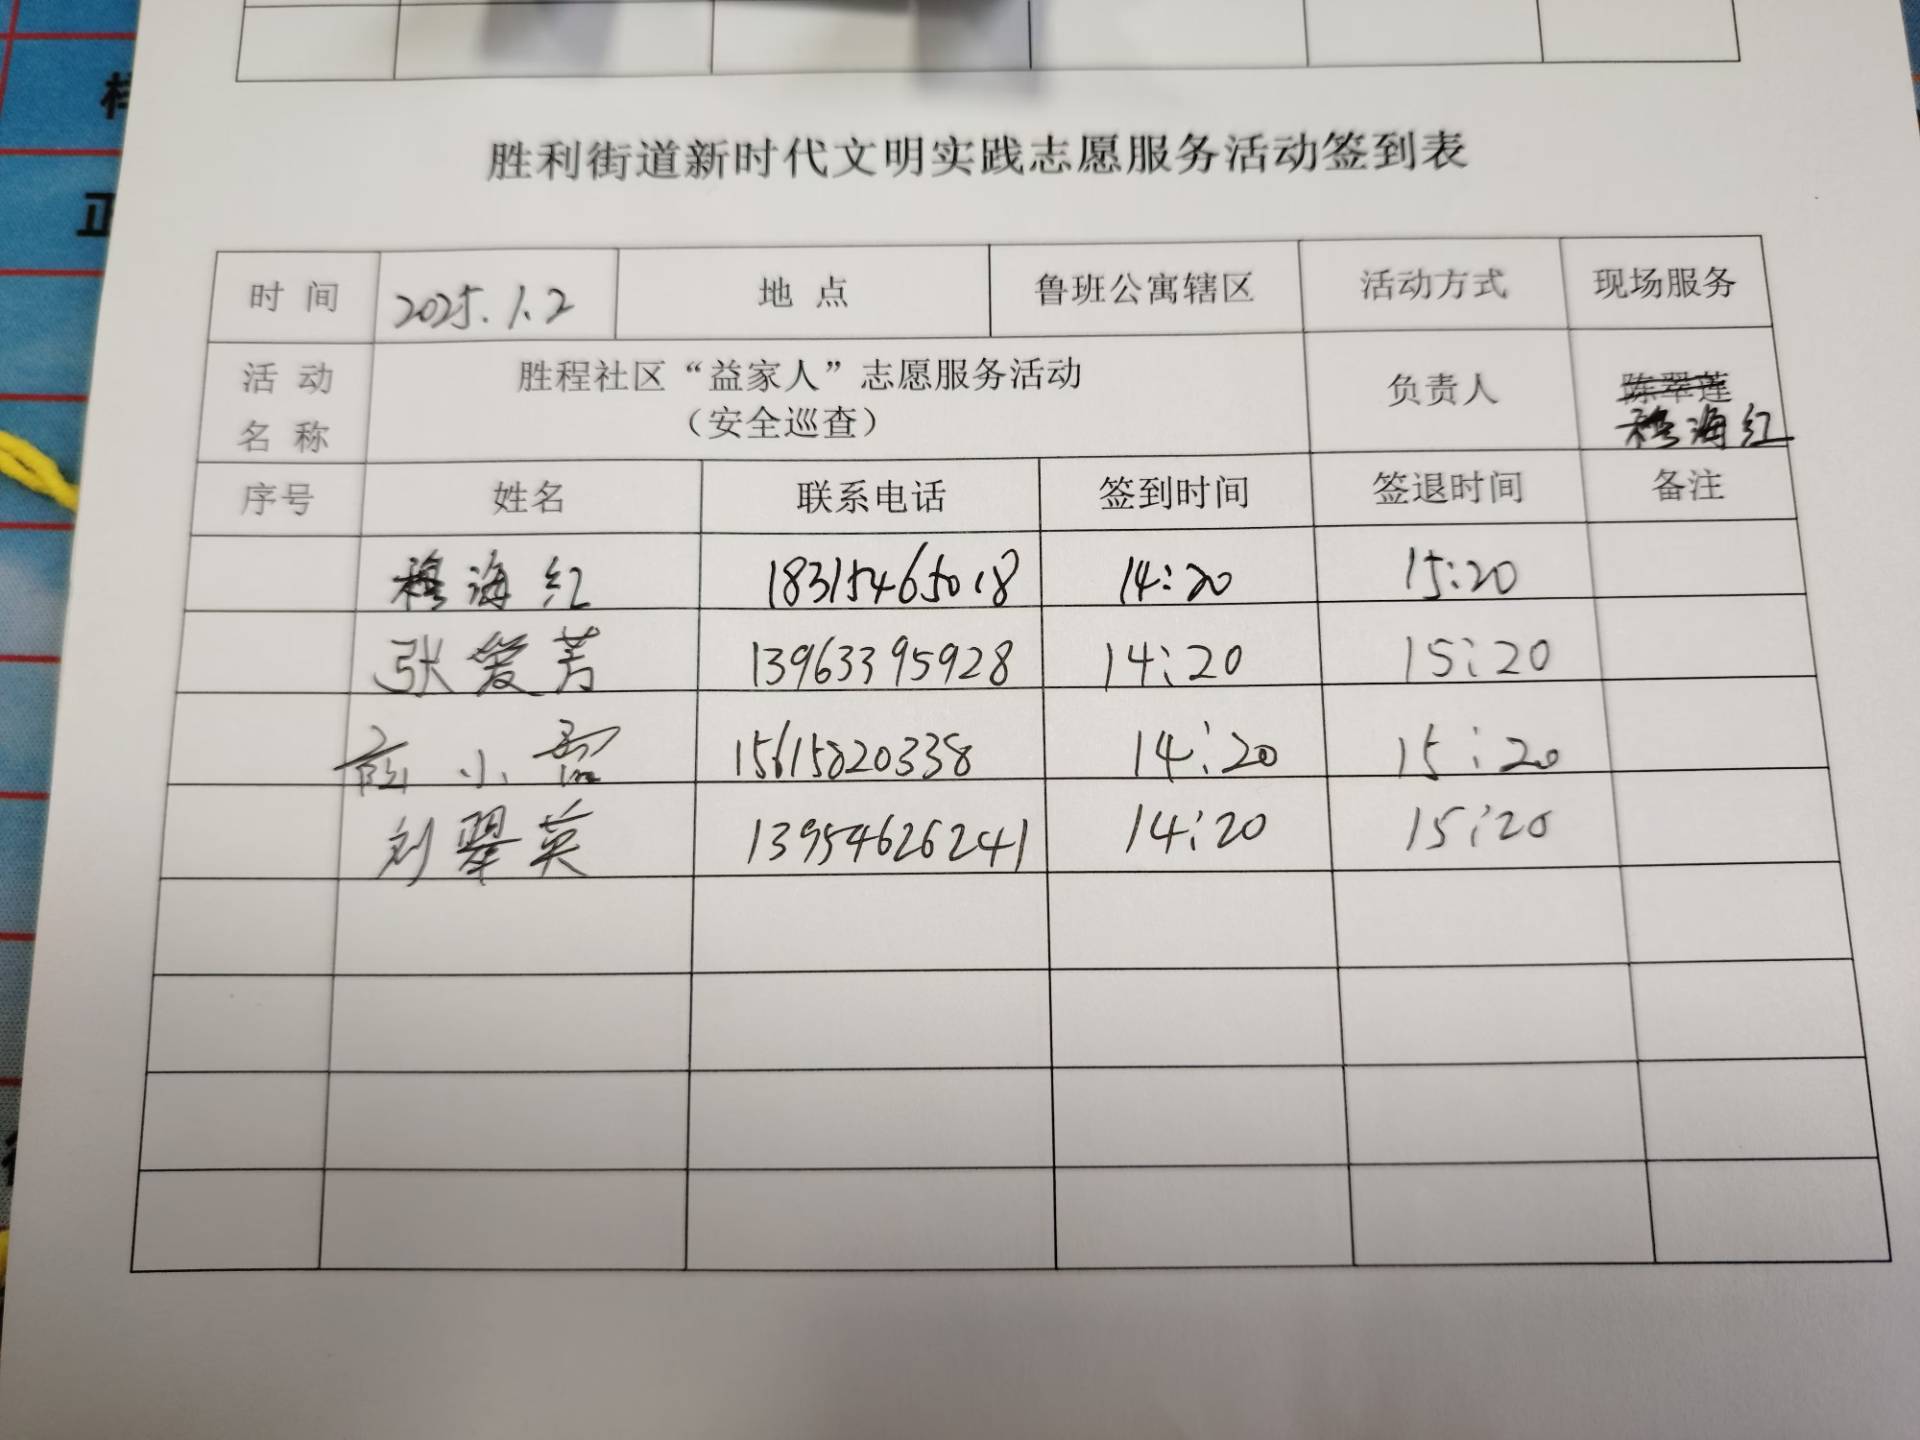 样
正
胜利街道新时代文明实践志愿服务活动签到表
时 间 2025.1.2 地 点 鲁班公寓辖区 活动方式 现场服务
活 动 名 称 胜程社区“益家人”志愿服务活动 负责人 陈翠莲
（安全巡查） 穆海红
序号 姓名 联系电话 签到时间 签退时间 备注
穆海红 18315465018 14:20 15:20
张爱芳 13963395928 14:20 15:20
小 15615820338 14:20 15:20
刘翠英 13954626241 14:20 15:20